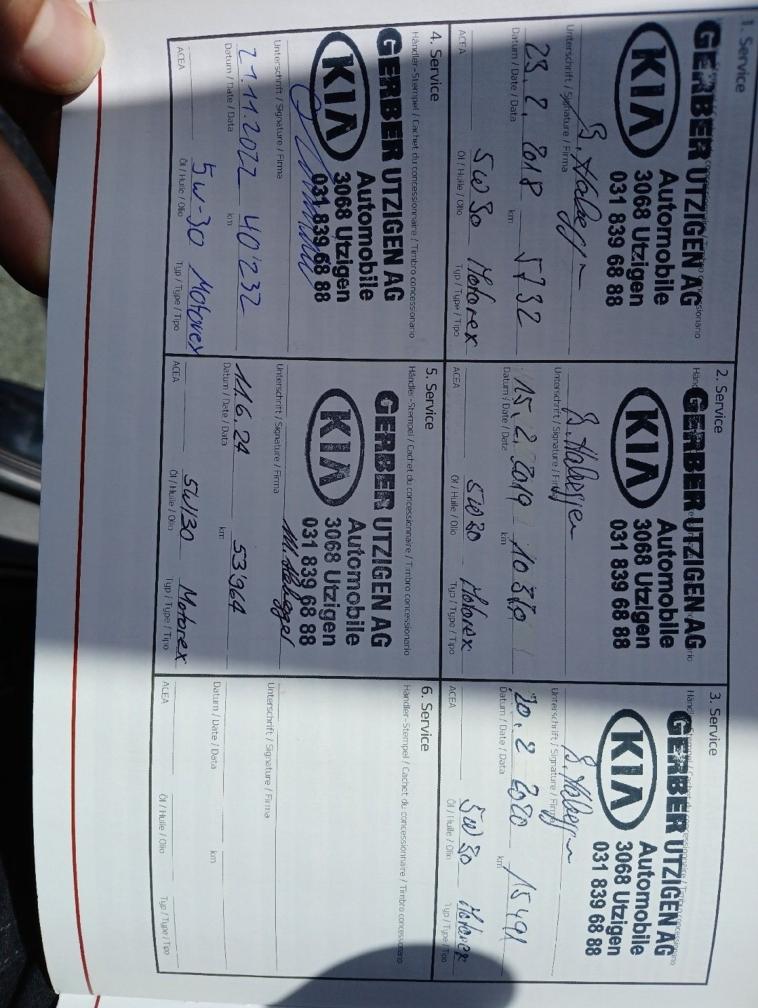 1. Service
GERBER UTZIGEN AG
KIA
Automobile
3068 Utzigen
031 839 68 88
Unterschrift / Signature / Firma
23. 2. 2018 5732
Datum / Date / Data km
5W30 Motorex
ACEA Öl / Huile / Olio Typ / Type / Tipo
2. Service
GERBER UTZIGEN AG
KIA
Automobile
3068 Utzigen
031 839 68 88
Unterschrift / Signature / Firma
15. 2. 2019
Datum / Date / Data km
5W30 Motorex
ACEA Öl / Huile / Olio Typ / Type / Tipo
3. Service
GERBER UTZIGEN AG
KIA
Automobile
3068 Utzigen
031 839 68 88
Unterschrift / Signature / Firma
20. 2 2020 15491
Datum / Date / Data km
5W30 Motorex
ACEA Öl / Huile / Olio Typ / Type / Tipo
4. Service
Händler-Stempel / Cachet du concessionnaire / Timbro concessionario
GERBER UTZIGEN AG
KIA
Automobile
3068 Utzigen
031 839 68 88
Unterschrift / Signature / Firma
21.11.2022 40'232
Datum / Date / Data km
5W-30 Motorex
ACEA Öl / Huile / Olio Typ / Type / Tipo
5. Service
Händler-Stempel / Cachet du concessionnaire / Timbro concessionario
GERBER UTZIGEN AG
KIA
Automobile
3068 Utzigen
031 839 68 88
Unterschrift / Signature / Firma
11.6.24 53'964
Datum / Date / Data km
5W30 Motorex
ACEA Öl / Huile / Olio Typ / Type / Tipo
6. Service
Händler-Stempel / Cachet du concessionnaire / Timbro concessionario
Unterschrift / Signature / Firma
Datum / Date / Data km
ACEA Öl / Huile / Olio Typ / Type / Tipo